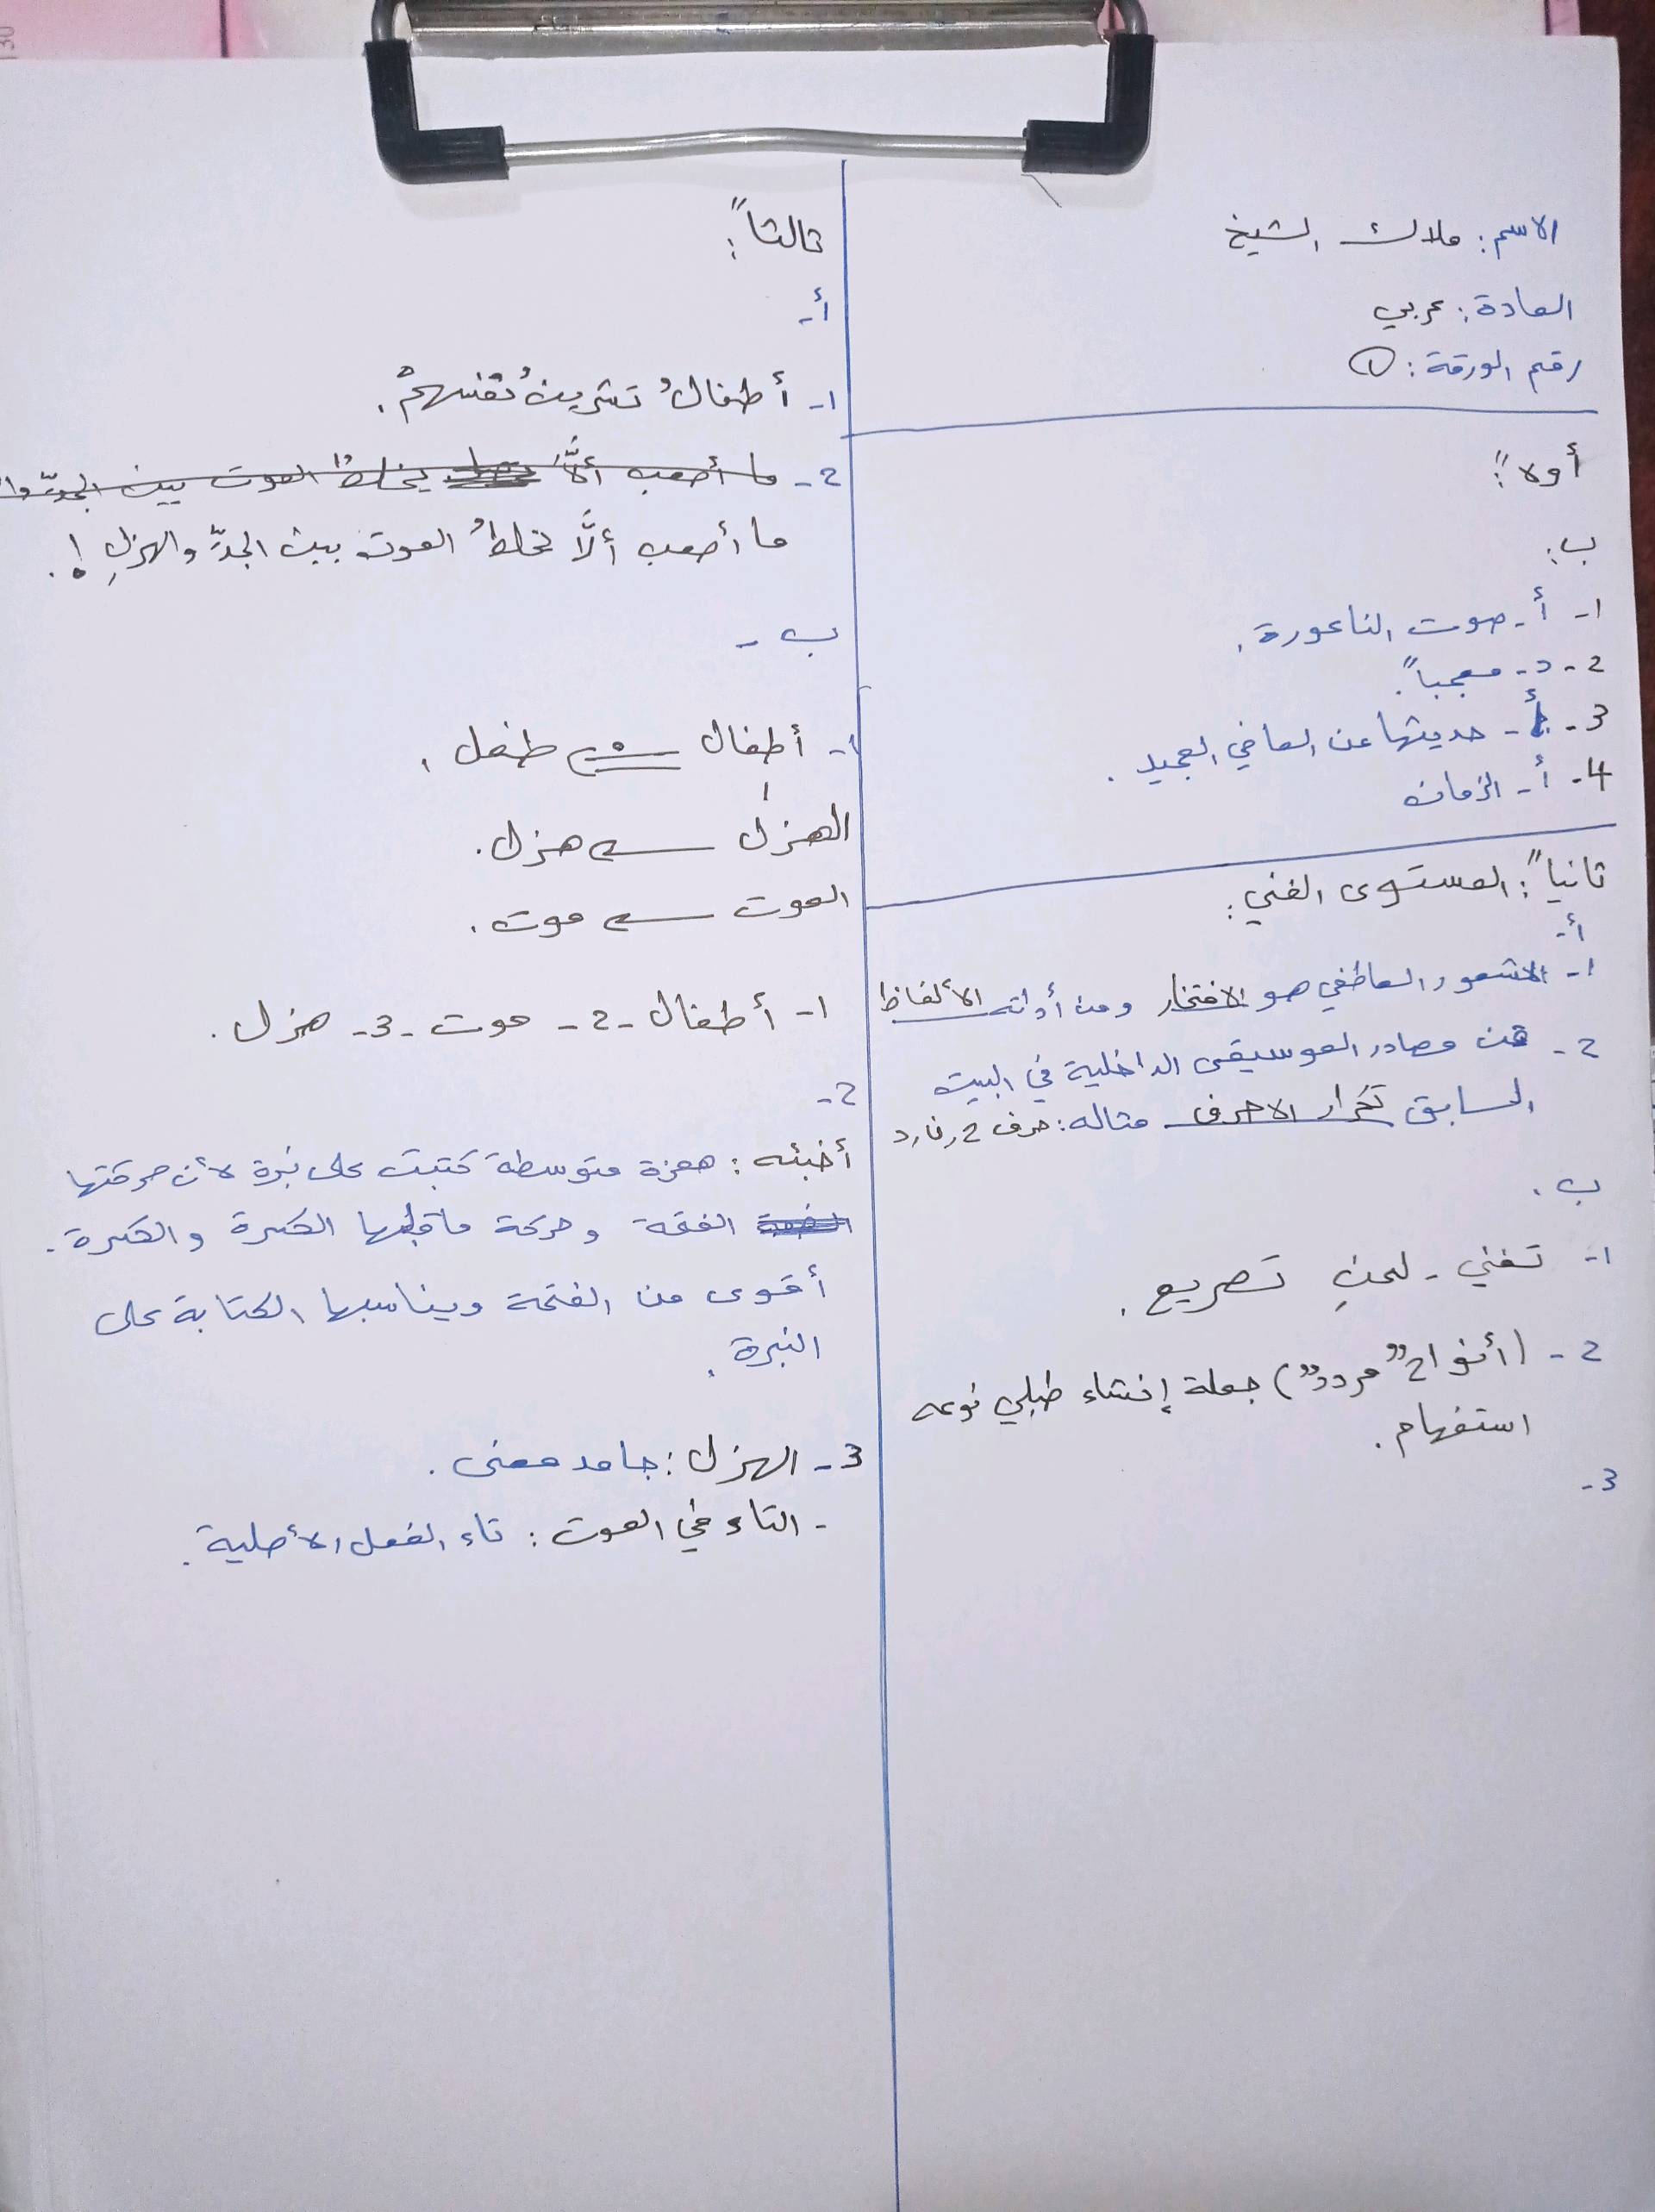 الاسم: ملاك الشيخ
المادة: عربي
رقم الورقة: ①
أولاً:
ب:
1- أ- صوت الناعورة.
2- د- معجباً.
3- أ- حديثها عن الماضي المجيد.
4- أ- الزمان
ثانياً: المستوى الفني:
أ-
1- الشعور العاطفي هو الافتخار ومن أدواته الألفاظ
2- من مصادر الموسيقى الداخلية في البيت
السابق تكرار الاحرف مثاله: حرف ح, ن, د
ب.
1- تغني - لحنِ تصريع.
2- (أنواح" مردد") جملة إنشاء طلبي نوعه
استفهام.
3-
ثالثاً:
أ-
1- أطفالُ تشرينَ نُفنيهمْ.
2- ما أصعب ألاَّ يخلطُ الموت بين الجدّ وا
ما أصعب ألاَّ تخلطُ الموت بين الجدِّ والهزلِ!.
ب -
1- أطفال ← طفل.
الهزل ← هزل.
الموت ← موت.
1- أطفال -2- موت -3- هزل.
2-
أخبئه: همزة متوسطة كتبت على نبرة لأن حركتها
الفتحة وحركة ماقبلها الكسرة والكسرة.
أقوى من الفتحة ويناسبها الكتابة على
النبرة.
3- الهزل: جامد معنى.
- التاء في الموت: تاء الفعل الأصلية.